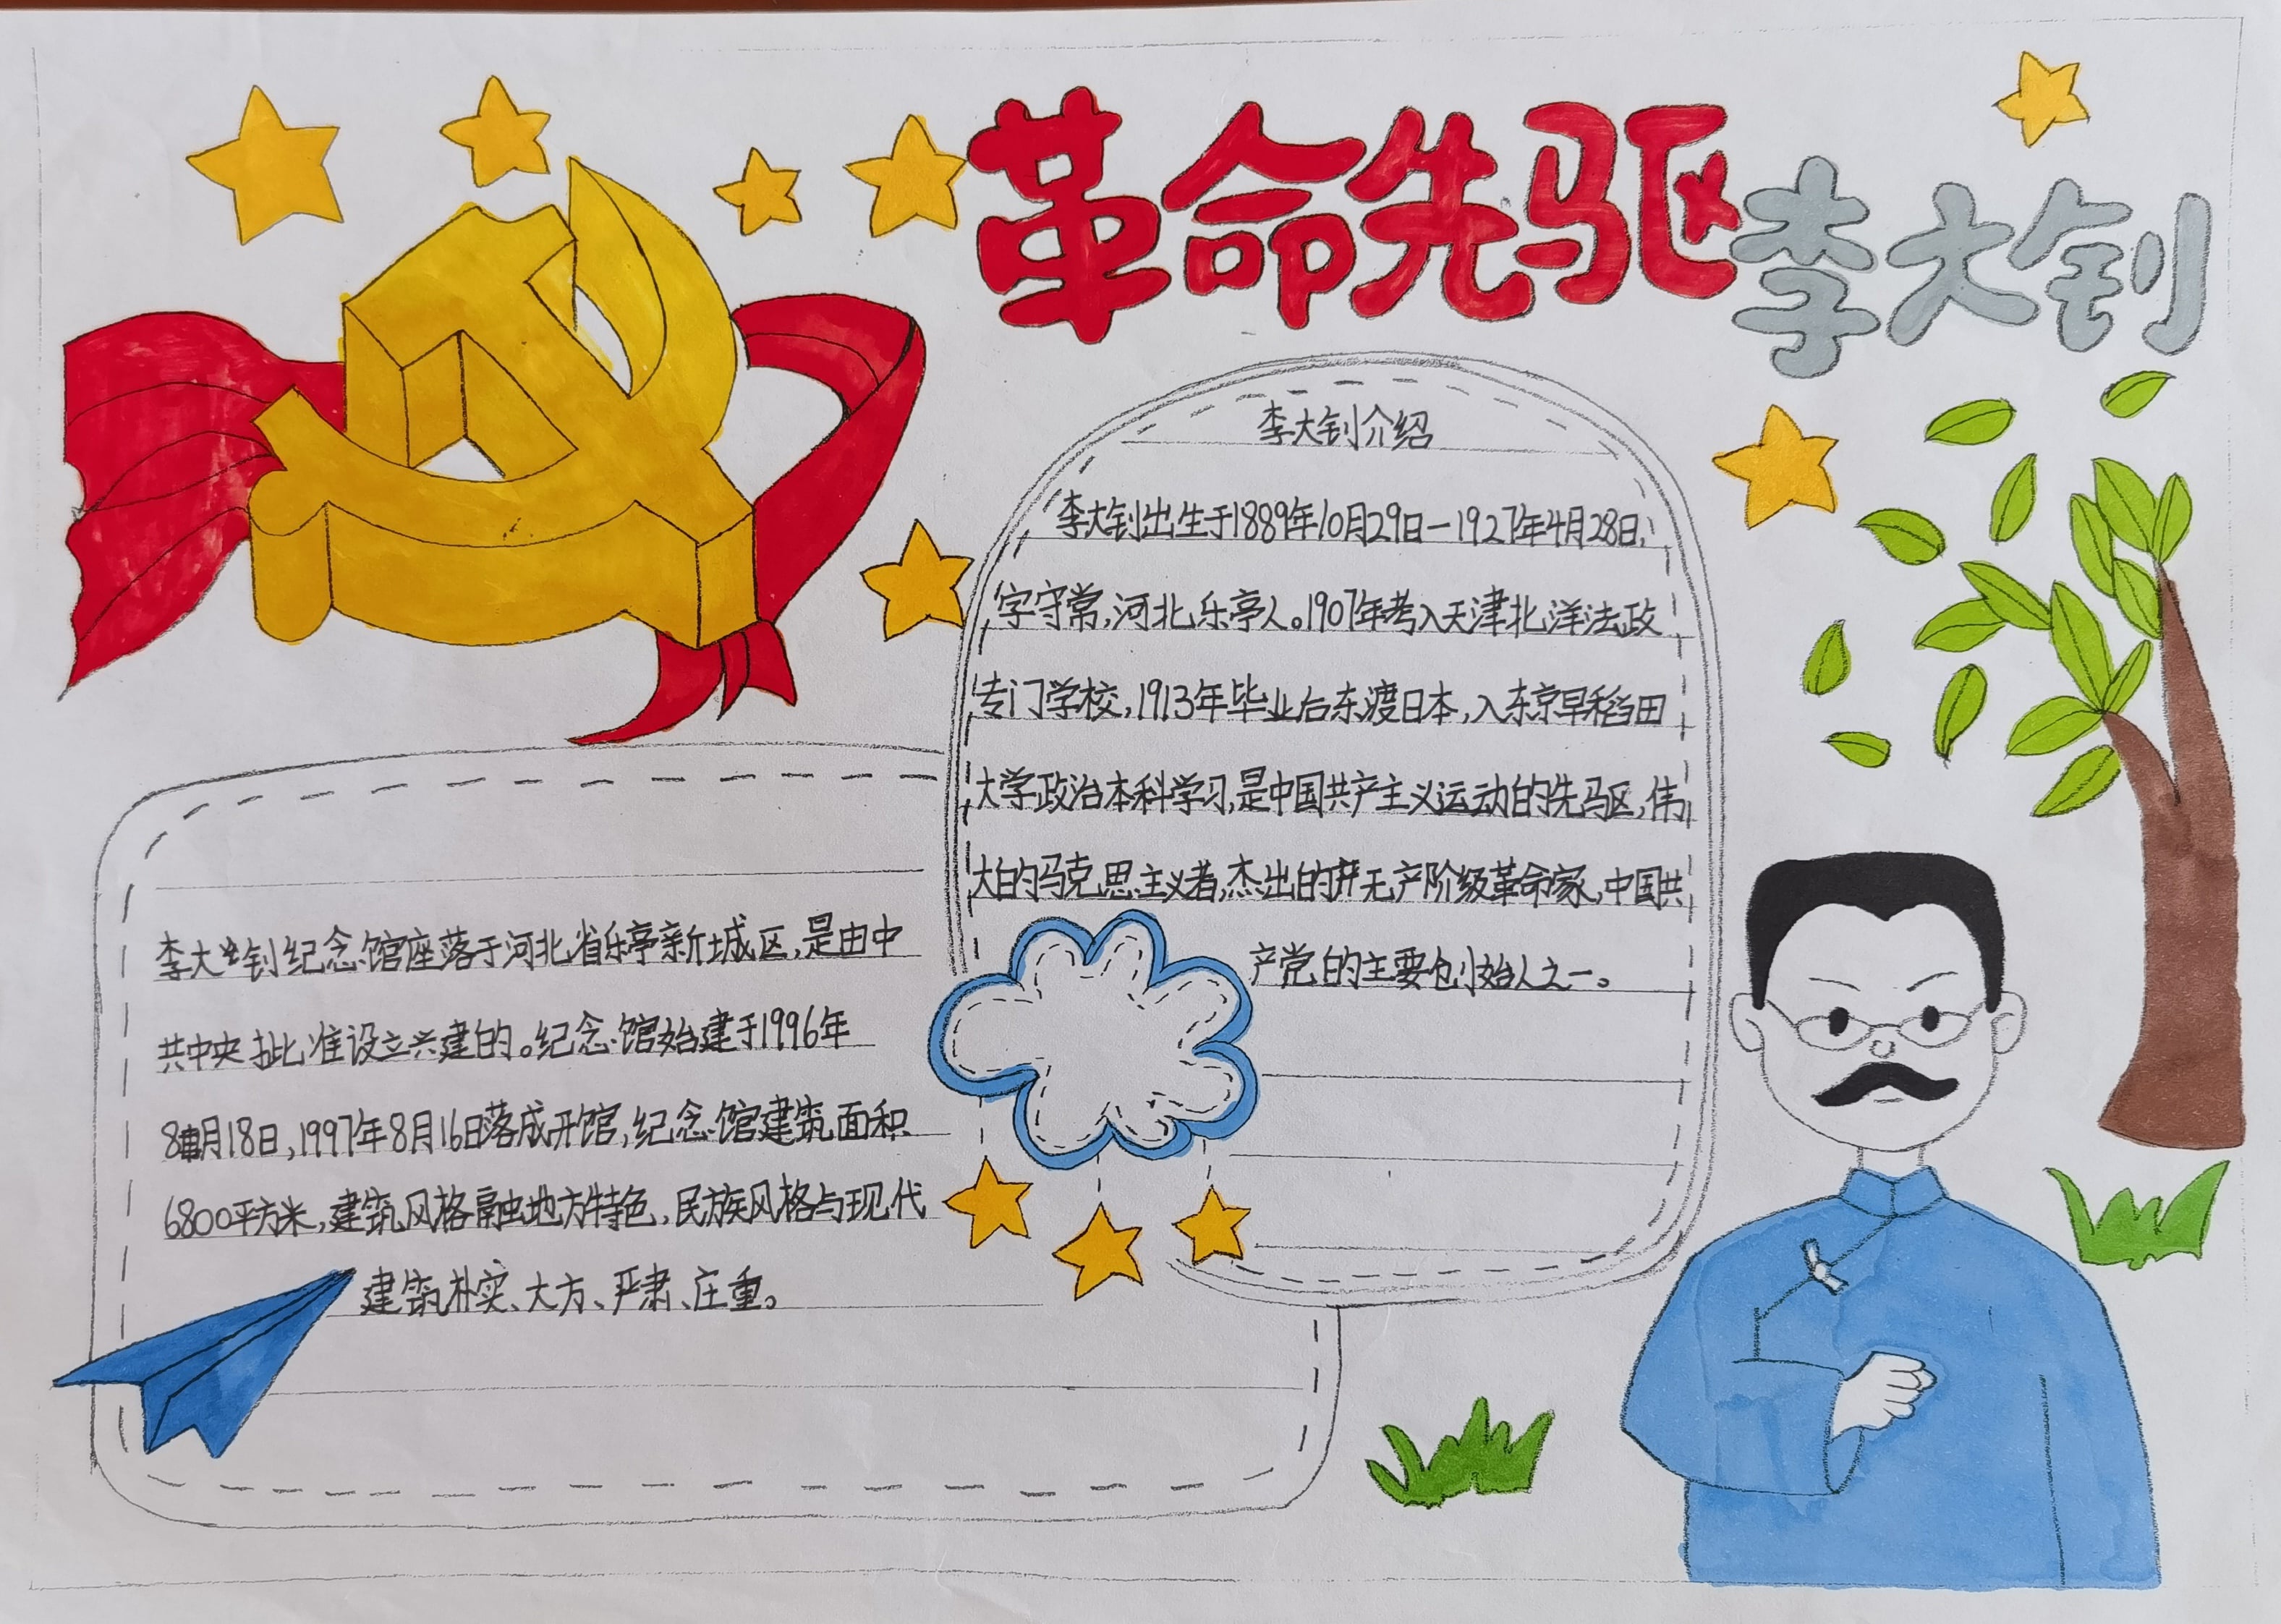 革命先驱李大钊
李大钊介绍
李大钊出生于1889年10月29日—1927年4月28日,
字守常,河北乐亭人。1907年考入天津北洋法政
专门学校,1913年毕业后东渡日本,入东京早稻田
大学政治本科学习,是中国共产主义运动的先驱,伟
大的马克思主义者,杰出的无产阶级革命家,中国共
产党的主要创始人之一。
李大钊纪念馆座落于河北省乐亭新城区,是由中
共中央批准设立兴建的。纪念馆始建于1996年
8月18日,1997年8月16日落成开馆,纪念馆建筑面积
6800平方米,建筑风格融地方特色,民族风格与现代
建筑朴实、大方、严肃、庄重。